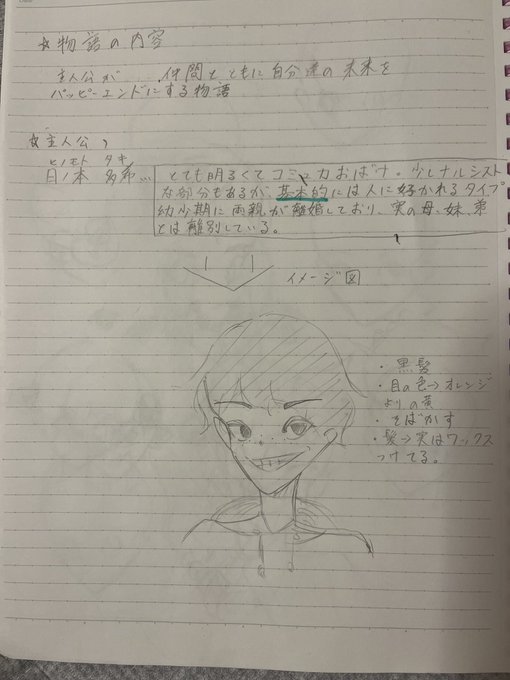 ☆物語の内容
主人公が 仲間とともに自分達の未来を
ハッピーエンドにする物語
☆主人公
ヒノモト タキ
日ノ本 多希…
とても明るくてコミュ力おばけ。少しナルシスト
な部分もあるが、基本的には人に好かれるタイプ
幼少期に両親が離婚しており、実の母、妹、弟
とは離別している。
イメージ図
・黒髪
・目の色→オレンジ
よりの黄
・そばかす
・髪→実はワックス
つけてる。